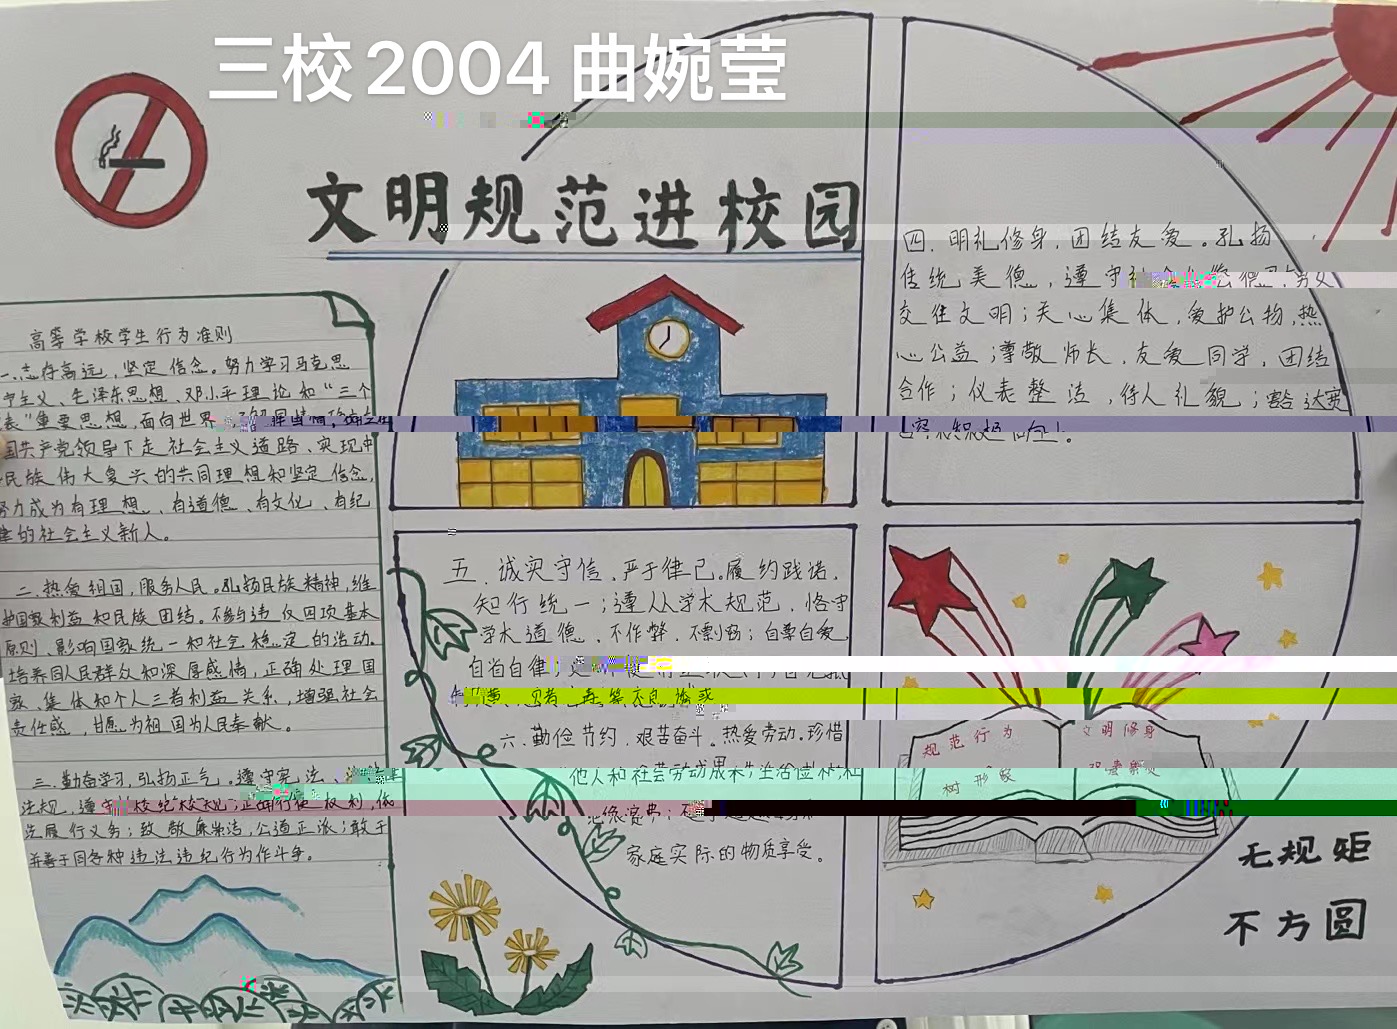 三校2004 曲婉莹
文明规范进校园
高等学校学生行为准则
一、志存高远，坚定信念。努力学习马克思
主义、毛泽东思想、邓小平理论和“三个
表”重要思想，面向世界，了解国情，确立在
国共产党领导下走社会主义道路、实现中
民族伟大复兴的共同理想和坚定信念，
努力成为有理想、有道德、有文化、有纪
的社会主义新人。
二、热爱祖国，服务人民。弘扬民族精神，维
护国家利益和民族团结。不参与违仅四项基本
原则、影响国家统一和社会稳定的活动。
培养同人民群众和深厚感情，正确处理国
家、集体和个人三者利益关系，增强社会
责任感，甘愿为祖国为人民奉献。
三、勤奋学习，弘扬正气。遵守宪法、
法规，遵守校纪校规；正确行使权利，依
法履行义务；敬廉崇洁，公道正派；敢于
并善于同各种违法违纪行为作斗争。
四、明礼修身，团结友爱。弘扬
传统美德，遵守社会公德，男女
交往文明；关心集体，爱护公物，热
心公益；尊敬师长，友爱同学，团结
合作；仪表整洁，待人礼貌；豁达宽
容，积极向上。
五、诚实守信，严于律己。履约践诺，
知行统一；遵从学术规范，恪守
学术道德，不作弊，不剽窃；自尊自爱
自省自律；
六、勤俭节约，艰苦奋斗。热爱劳动。珍惜
他人和社会劳动成果；生活俭朴，杜
绝浪费；不
家庭实际的物质享受。
规范行为
文明修身
树形
无规矩
不方圆